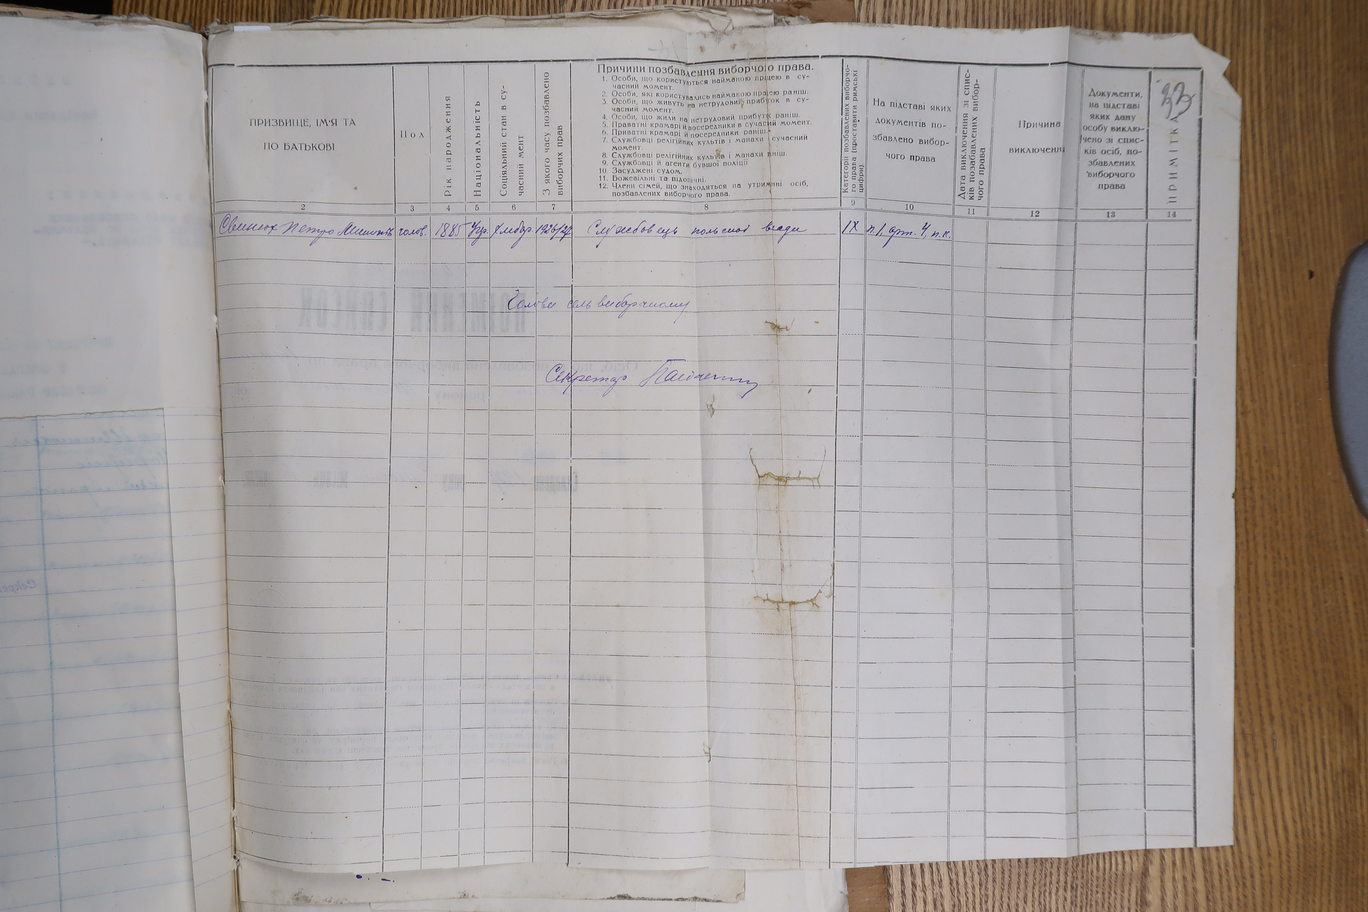 ПРИЗВИЩЕ, ІМ'Я ТА
ПО БАТЬКОВІ
Пол
Рік народження
Національність
Соціяльний стан в су-
часний мент
З якого часу позбавлено
виборчих прав
Причини позбавлення виборчого права.
1. Особи, що користуються найманою працею в су-
часний момент.
2. Особи, які користувались найманою працею раніш.
3. Особи, що живуть на нетрудовий прибуток в су-
часний момент
4. Особи, що жили на нетрудовий прибуток раніш.
6. Приватні крамарі й посередники в сучасний момент.
6. Приватні крамарі й посередники раніш.
7. Службовці релігійних культів і манахи в сучасний
момент.
8. Службовці релігійних культів і манахи раніш.
9. Службовці й агенти бувшої поліції
10. Засуджені судом.
11. Божевільні та підопічні.
12. Члени сімей, що знаходяться на утримані осіб,
позбавлених виборчого права.
Категорії позбавлених виборчо-
го права (проставити римські
цифри)
На підставі яких
документів по-
збавлено вибор-
чого права
Дата виключення зі спис-
ків позабавлених вибор-
чого права
Причина
виключення
Документи,
на підставі
яких дану
особу виклю-
чено зі спис-
ків осіб, по-
збавлених
виборчого
права
ПРИМІТКИ
2 3 4 5 6 7 8 9 10 11 12 13 14
Петро голов. 1885 Укр. Хлібор 1926/27 Службовець польської влади IX п. арт. 4 п. к.
Голова сель виборчкому
Секретар